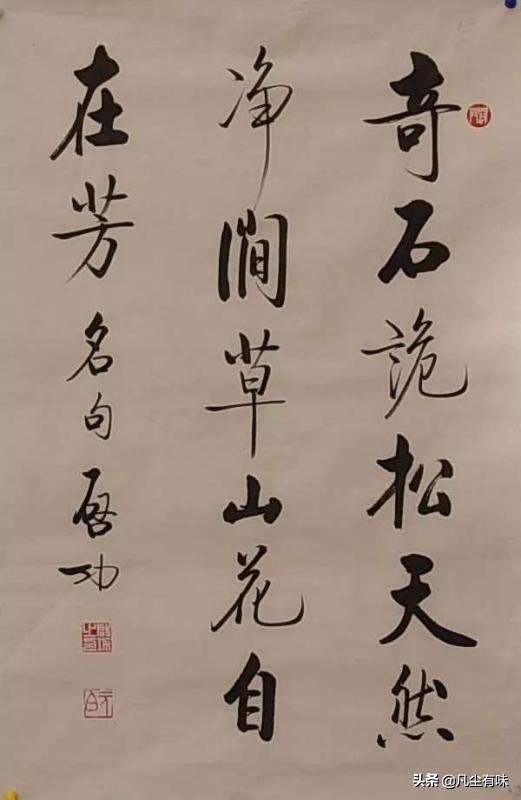 奇石诡松天然
净涧草山花自
在芳 名句 启功
头条 @凡尘有味